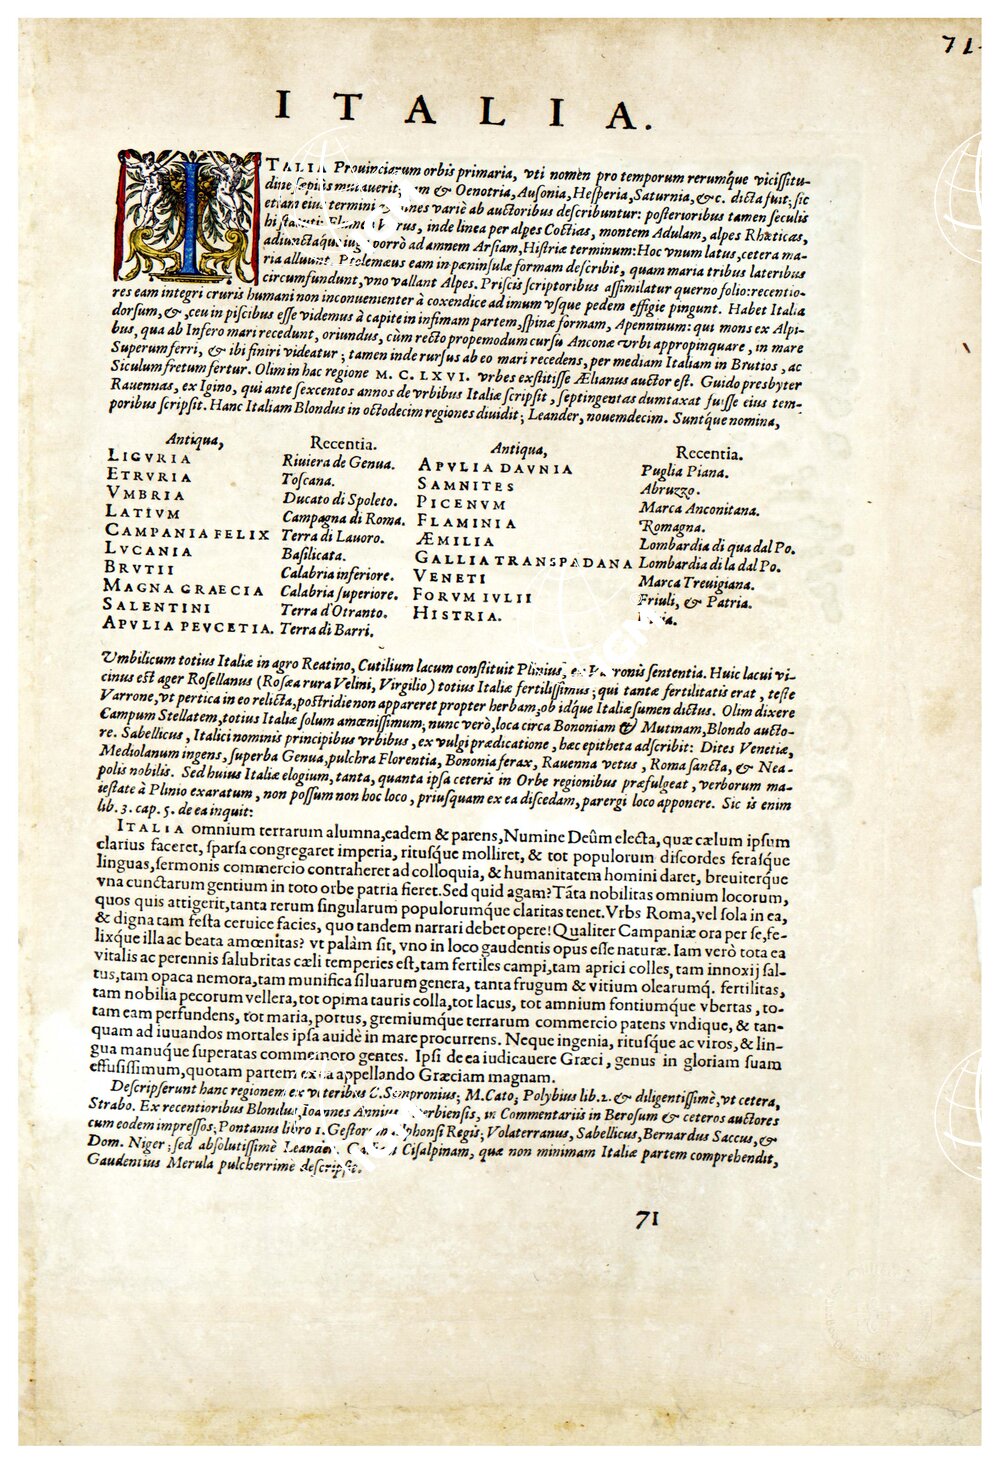 71.
ITALIA.
ITALIA Prouinciarum orbis primaria, vti nomen pro temporum rerumq́ue vicissitu-
dine sæpiùs mutauerit; & Oenotria, Ausonia, Hesperia, Saturnia, &c. dicta fuit; sic
etiam eius termini variè ab auctoribus describuntur: posterioribus tamen seculis
inde linea per alpes Coctias, montem Adulam, alpes Rhæticas,
adiunctaque porrò ad amnem Arsiam, Histriæ terminum: Hoc vnum latus, cetera ma-
ria alluunt. Ptolemæus eam in pæninsulæ formam describit, quam maria tribus lateribus
circumfundunt, vno vallant Alpes. Priscis scriptoribus assimilatur querno folio: recentio-
res eam integri cruris humani non inconuenienter à coxendice ad imum vsque pedem effigie pingunt. Habet Italia
dorsum, &, ceu in piscibus esse videmus à capite in infimam partem, spinæ formam, Apenninum: qui mons ex Alpi-
bus, qua ab Infero mari recedunt, oriundus, cùm recto propemodum cursu Anconæ vrbi appropinquare, in mare
Superum ferri, & ibi finiri videatur; tamen inde rursus ab eo mari recedens, per mediam Italiam in Brutios, ac
Siculum fretum fertur. Olim in hac regione M. C. LXVI. vrbes exstitisse Ælianus auctor est. Guido presbyter
Rauennas, ex Igino, qui ante sexcentos annos de vrbibus Italiæ scripsit, septingentas dumtaxat fuisse eius tem-
poribus scripsit. Hanc Italiam Blondus in octodecim regiones diuidit; Leander, nouemdecim. Suntq́ue nomina,
Antiqua, Recentia. Antiqua, Recentia.
LIGVRIA Riuiera de Genua. APVLIA DAVNIA Puglia Piana.
ETRVRIA Toscana. SAMNITES Abruzzo.
VMBRIA Ducato di Spoleto. PICENVM Marca Anconitana.
LATIVM Campagna di Roma. FLAMINIA Romagna.
CAMPANIA FELIX Terra di Lauoro. ÆMILIA Lombardia di qua dal Po.
LVCANIA Basilicata. GALLIA TRANSPADANA Lombardia di la dal Po.
BRVTII Calabria inferiore. VENETI Marca Treuigiana.
MAGNA GRAECIA Calabria superiore. FORVM IVLII Friuli, & Patria.
SALENTINI Terra d'Otranto. HISTRIA.
APVLIA PEVCETIA. Terra di Barri.
Vmbilicum totius Italiæ in agro Reatino, Cutilium lacum constituit Plinius, ex Varronis sententia. Huic lacui vi-
cinus est ager Rosellanus (Rosea rura Velini, Virgilio) totius Italiæ fertilissimus; qui tantæ fertilitatis erat, teste
Varrone, vt pertica in eo relicta, postridie non appareret propter herbam; ob idq́ue Italiæ sumen dictus. Olim dixere
Campum Stellatem, totius Italiæ solum amœnissimum; nunc verò, loca circa Bononiam & Mutinam, Blondo aucto-
re. Sabellicus, Italici nominis principibus vrbibus, ex vulgi prædicatione, hæc epitheta adscribit: Dites Venetiæ,
Mediolanum ingens, superba Genua, pulchra Florentia, Bononia ferax, Rauenna vetus, Roma sancta, & Nea-
polis nobilis. Sed huius Italiæ elogium, tanta, quanta ipsa ceteris in Orbe regionibus præfulgeat, verborum ma-
iestate à Plinio exaratum, non possum non hoc loco, priusquam ex ea discedam, parergi loco apponere. Sic is enim
lib. 3. cap. 5. de ea inquit:
ITALIA omnium terrarum alumna, eadem & parens, Numine Deûm electa, quæ cælum ipsum
clarius faceret, sparsa congregaret imperia, ritusq́ue molliret, & tot populorum discordes ferasq́ue
linguas, sermonis commercio contraheret ad colloquia, & humanitatem homini daret, breuiterq́ue
vna cunctarum gentium in toto orbe patria fieret. Sed quid agam? Tãta nobilitas omnium locorum,
quos quis attigerit, tanta rerum singularum populorumq́ue claritas tenet. Vrbs Roma, vel sola in ea,
& digna tam festa ceruice facies, quo tandem narrari debet opere! Qualiter Campaniæ ora per se, fe-
lixq́ue illa ac beata amœnitas? vt palàm sit, vno in loco gaudentis opus esse naturæ. Iam verò tota ea
vitalis ac perennis salubritas cæli temperies est, tam fertiles campi, tam aprici colles, tam innoxij sal-
tus, tam opaca nemora, tam munifica siluarum genera, tanta frugum & vitium olearumq́. fertilitas,
tam nobilia pecorum vellera, tot opima tauris colla, tot lacus, tot amnium fontiumq́ue vbertas, to-
tam eam perfundens, tot maria, portus, gremiumq́ue terrarum commercio patens vndique, & tan-
quam ad iuuandos mortales ipsa auidè in mare procurrens. Neque ingenia, ritusq́ue ac viros, & lin-
gua manuq́ue superatas commemoro gentes. Ipsi de ea iudicauere Græci, genus in gloriam suam
effusissimum, quotam partem ex ea appellando Græciam magnam.
Descripserunt hanc regionem, ex veteribus C. Sempronius; M. Cato; Polybius lib. 2. & diligentissimè, vt cetera,
Strabo. Ex recentioribus Blondus, Ioannes Annius Viterbiensis, in Commentariis in Berosum & ceteros auctores
cum eodem impressos; Pontanus libro 1. Gestorum Alphonsi Regis; Volaterranus, Sabellicus, Bernardus Saccus, &
Dom. Niger; sed absolutissimè Leander. Galliam Cisalpinam, quæ non minimam Italiæ partem comprehendit,
Gaudentius Merula pulcherrimè descripsit.
71